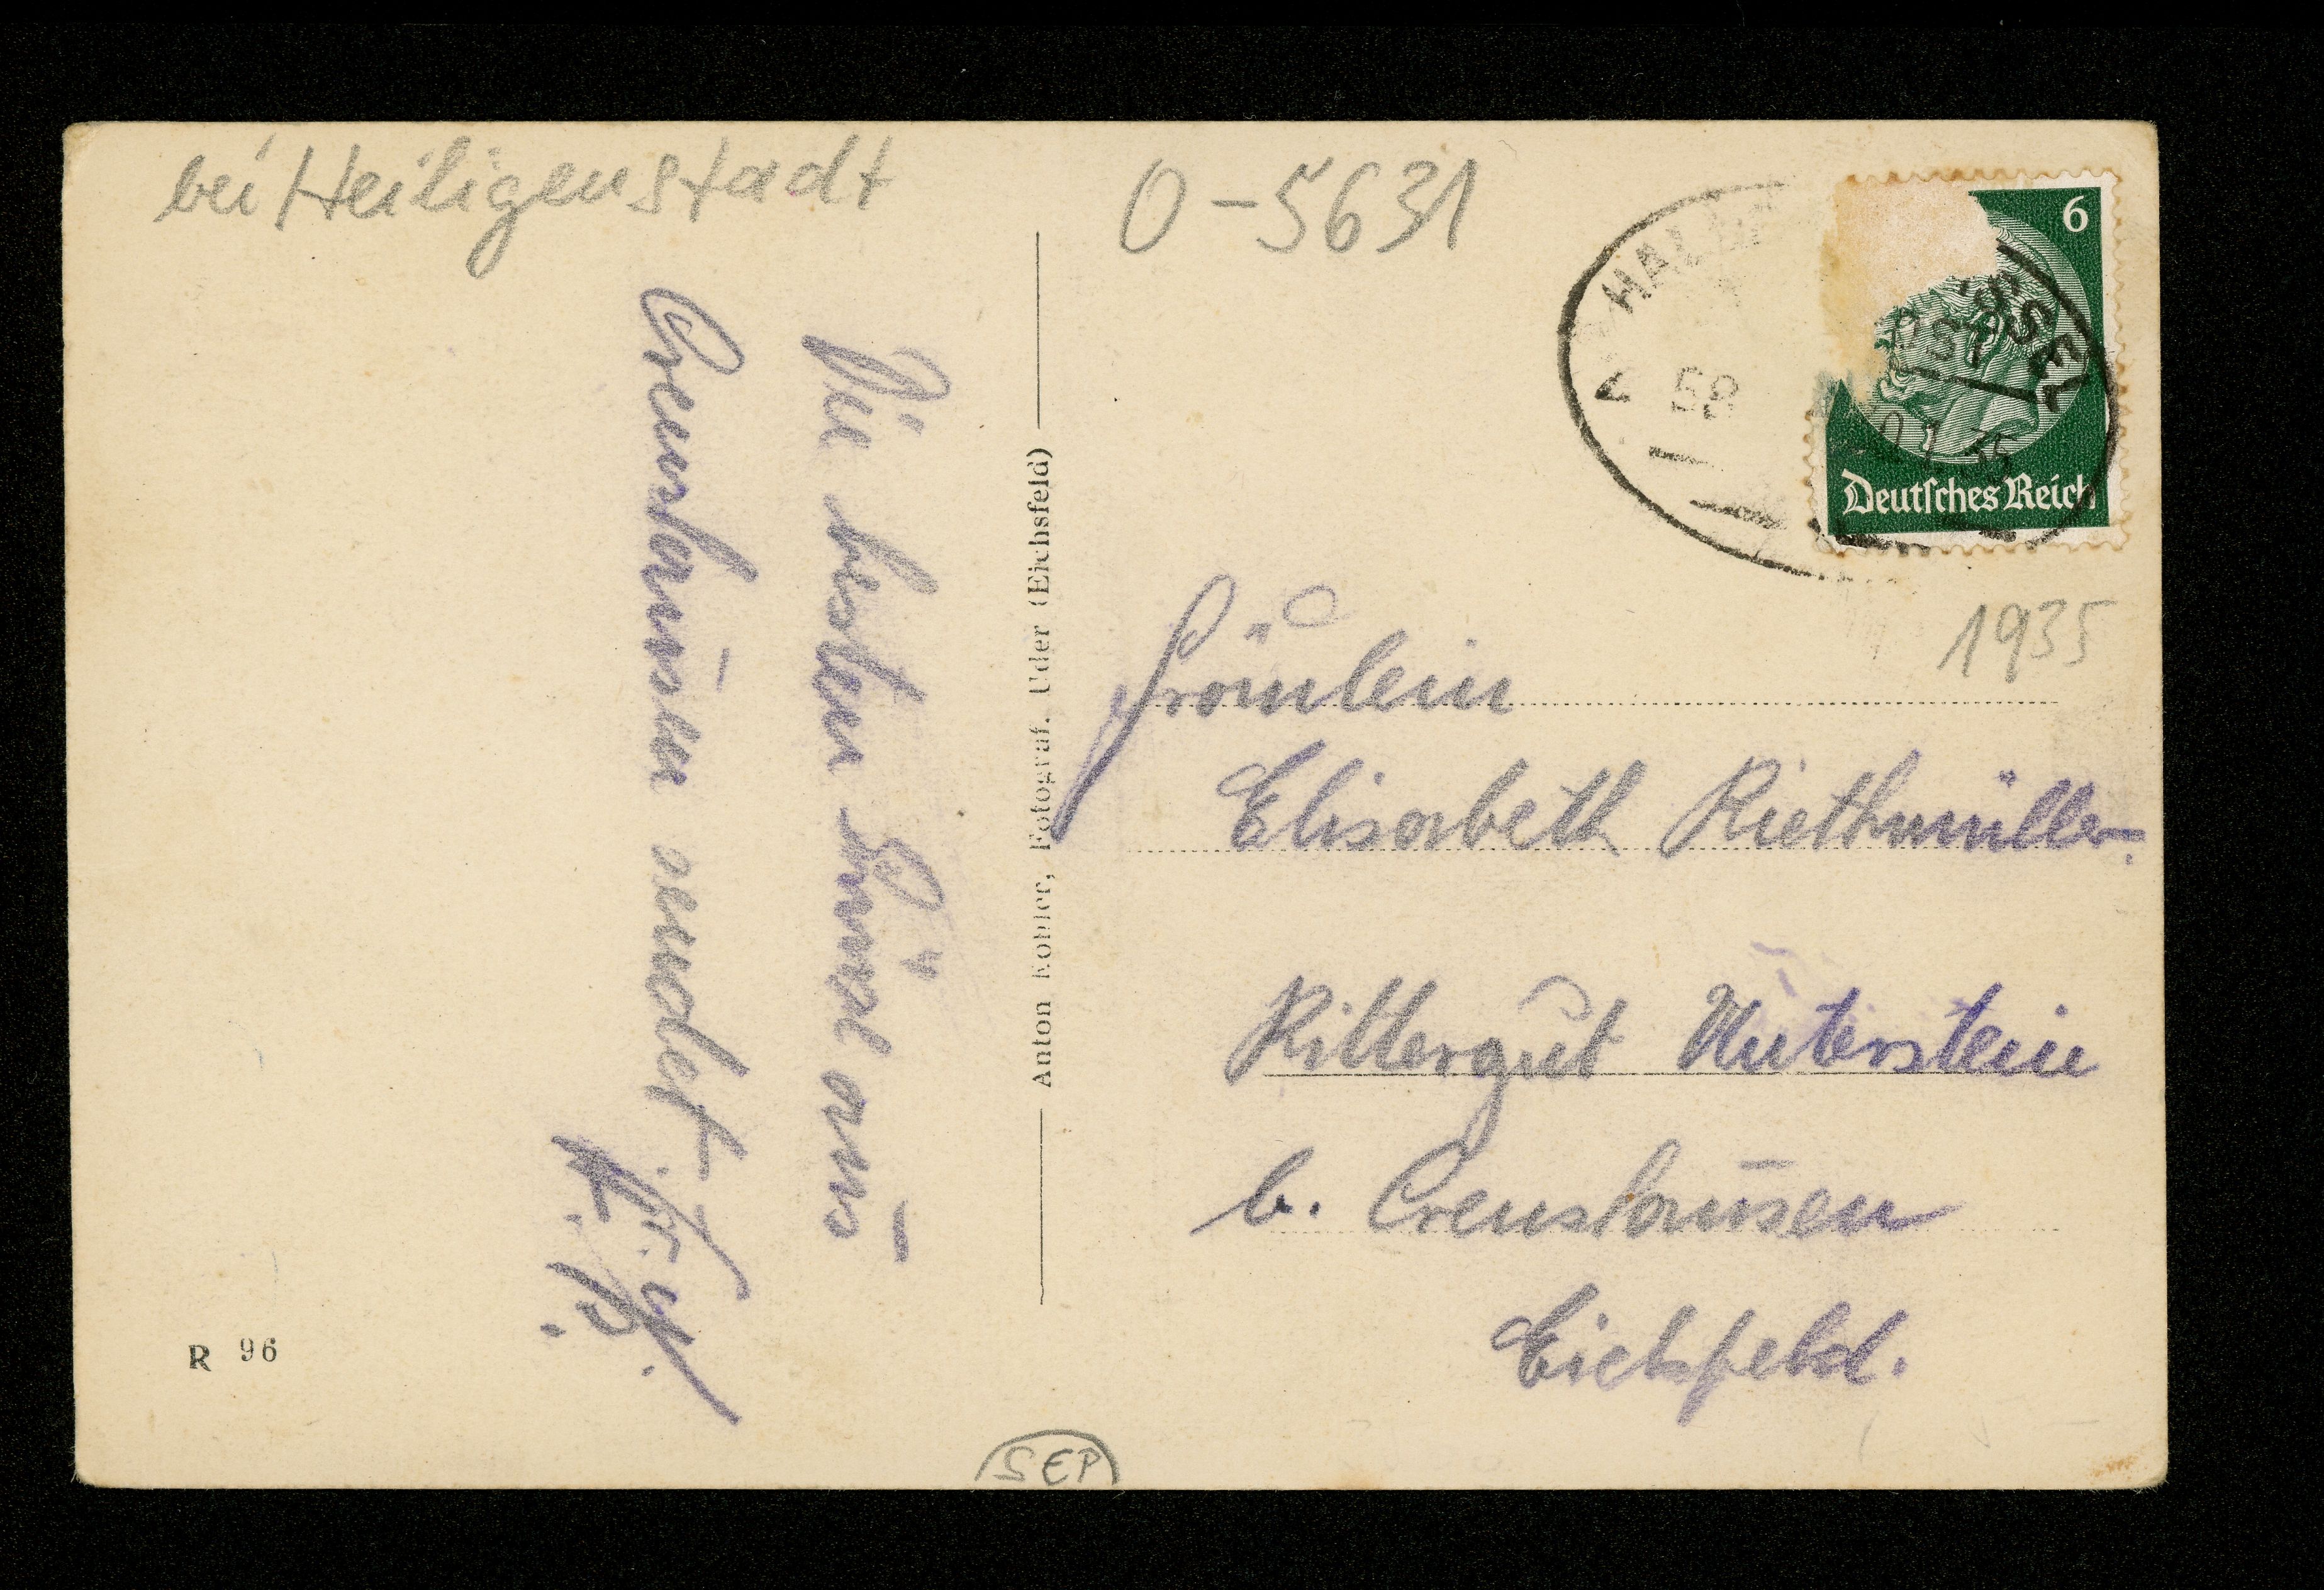 bei Heiligenstadt
O-5631
HALLE
KASSEL
58
6
Deutsches Reich
1935
Die besten Grüße aus
Creuzhausen sendet
Anton Kohler, Fotograf. Uder (Eichsfeld)
Fräulein
Elisabeth Riethmüller.
Rittergut Unterstein
b.
Eichsfeld.
R 96
SEP